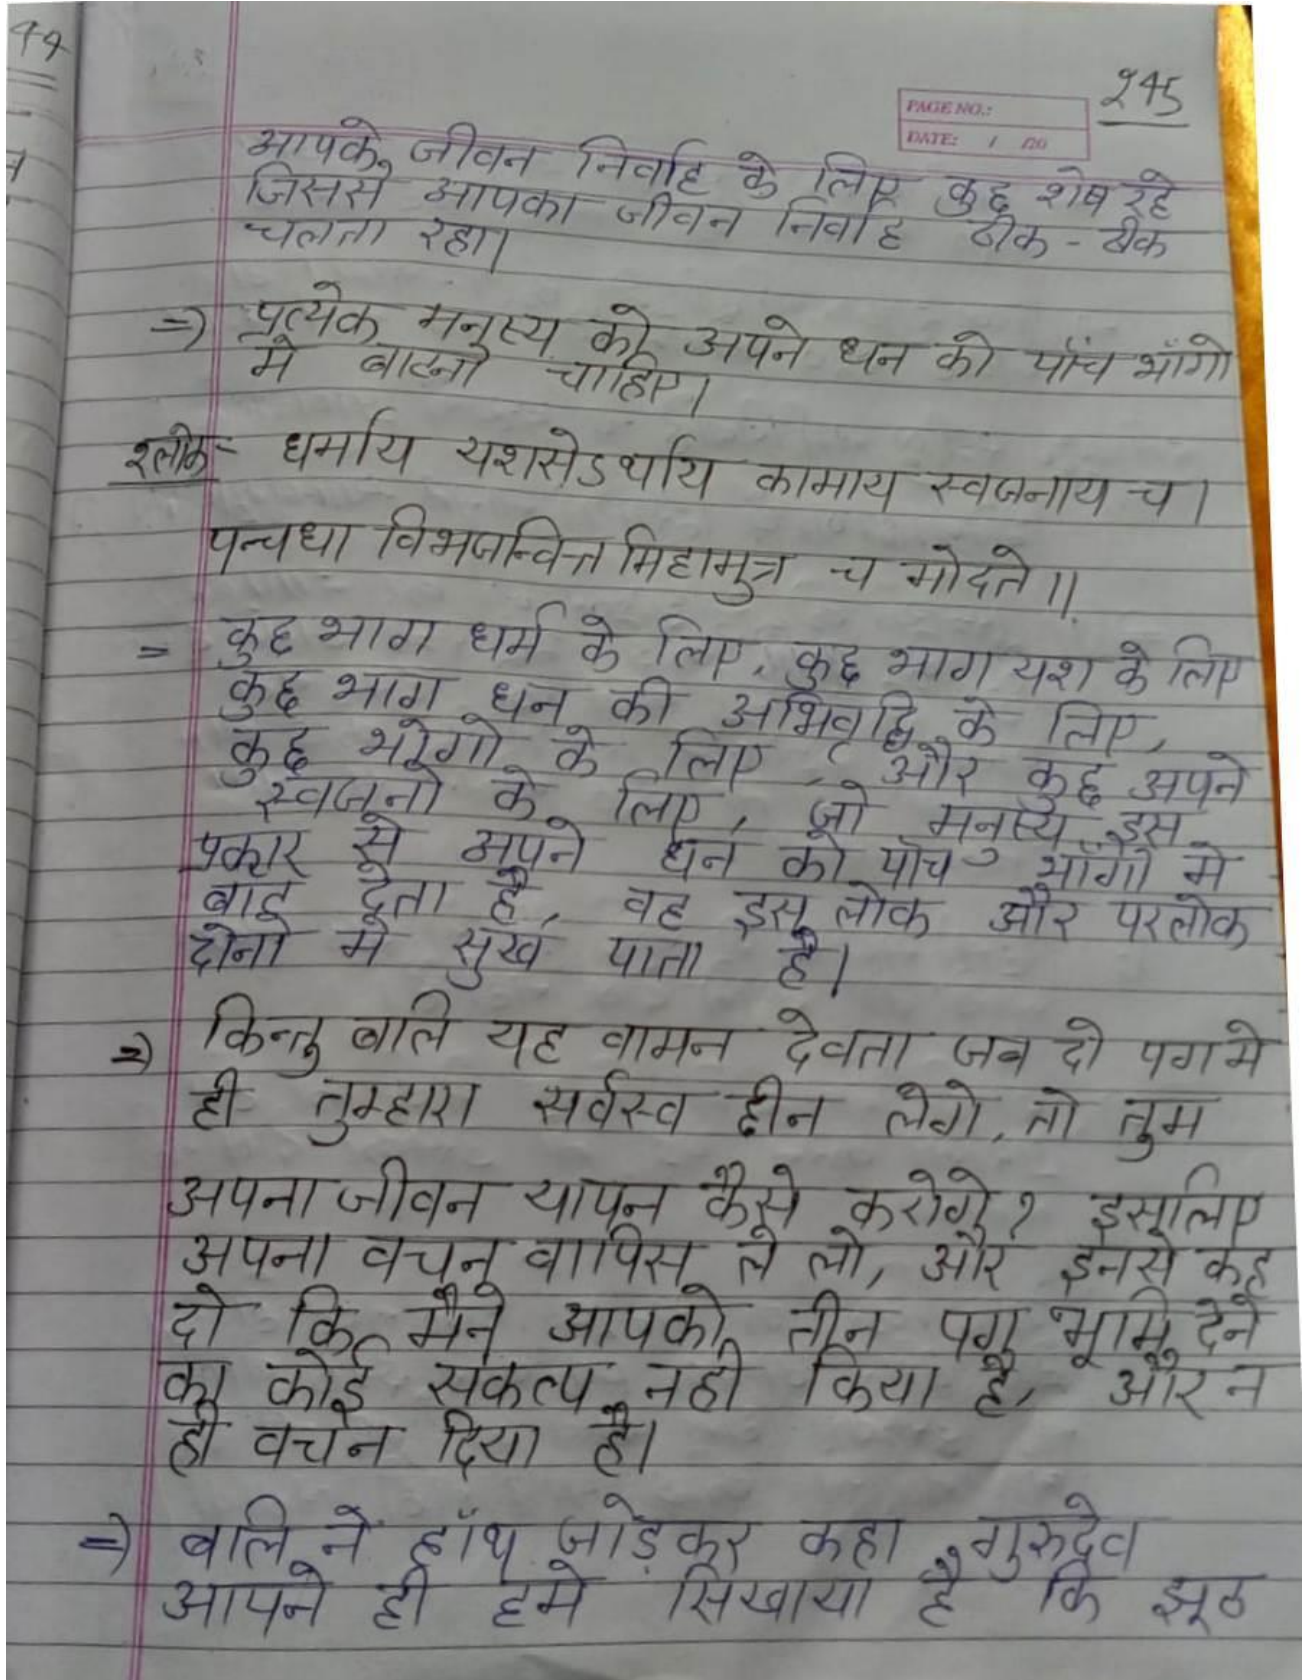 44
245
PAGE NO.:
DATE: / /20
आपके जीवन निर्वाह के लिए कुछ शेष रहे
जिससे आपका जीवन निर्वाह ठीक - ठीक
चलता रहा।
=) प्रत्येक मनुष्य को अपने धन को पाँच भाँगो
मे बाटना चाहिए।
श्लोक- धर्माय यशसेऽर्थाय कामाय स्वजनाय च।
पन्चधा विभजन्वित्तमिहामुत्र च मोदते॥
= कुछ भाग धर्म के लिए, कुछ भाग यश के लिए
कुछ भाग धन की अभिवृद्धि के लिए,
कुछ भोगो के लिए, और कुछ अपने
स्वजनो के लिए, जो मनुष्य इस
प्रकार से अपने धन को पाँच भाँगो मे
बाट देता है, वह इस लोक और परलोक
दोनो मे सुख पाता है।
=) किन्तु बालि यह वामन देवता जब दो पग मे
ही तुम्हारा सर्वस्व छीन लेगे, तो तुम
अपना जीवन यापन कैसे करोगे? इसलिए
अपना वचन वापिस ले लो, और इनसे कह
दो कि मैने आपको तीन पग भूमि देने
का कोई संकल्प नही किया है, और न
ही वचन दिया है।
=) बालि ने हाँथ जोड़कर कहा गुरुदेव
आपने ही हमे सिखाया है कि झूठ